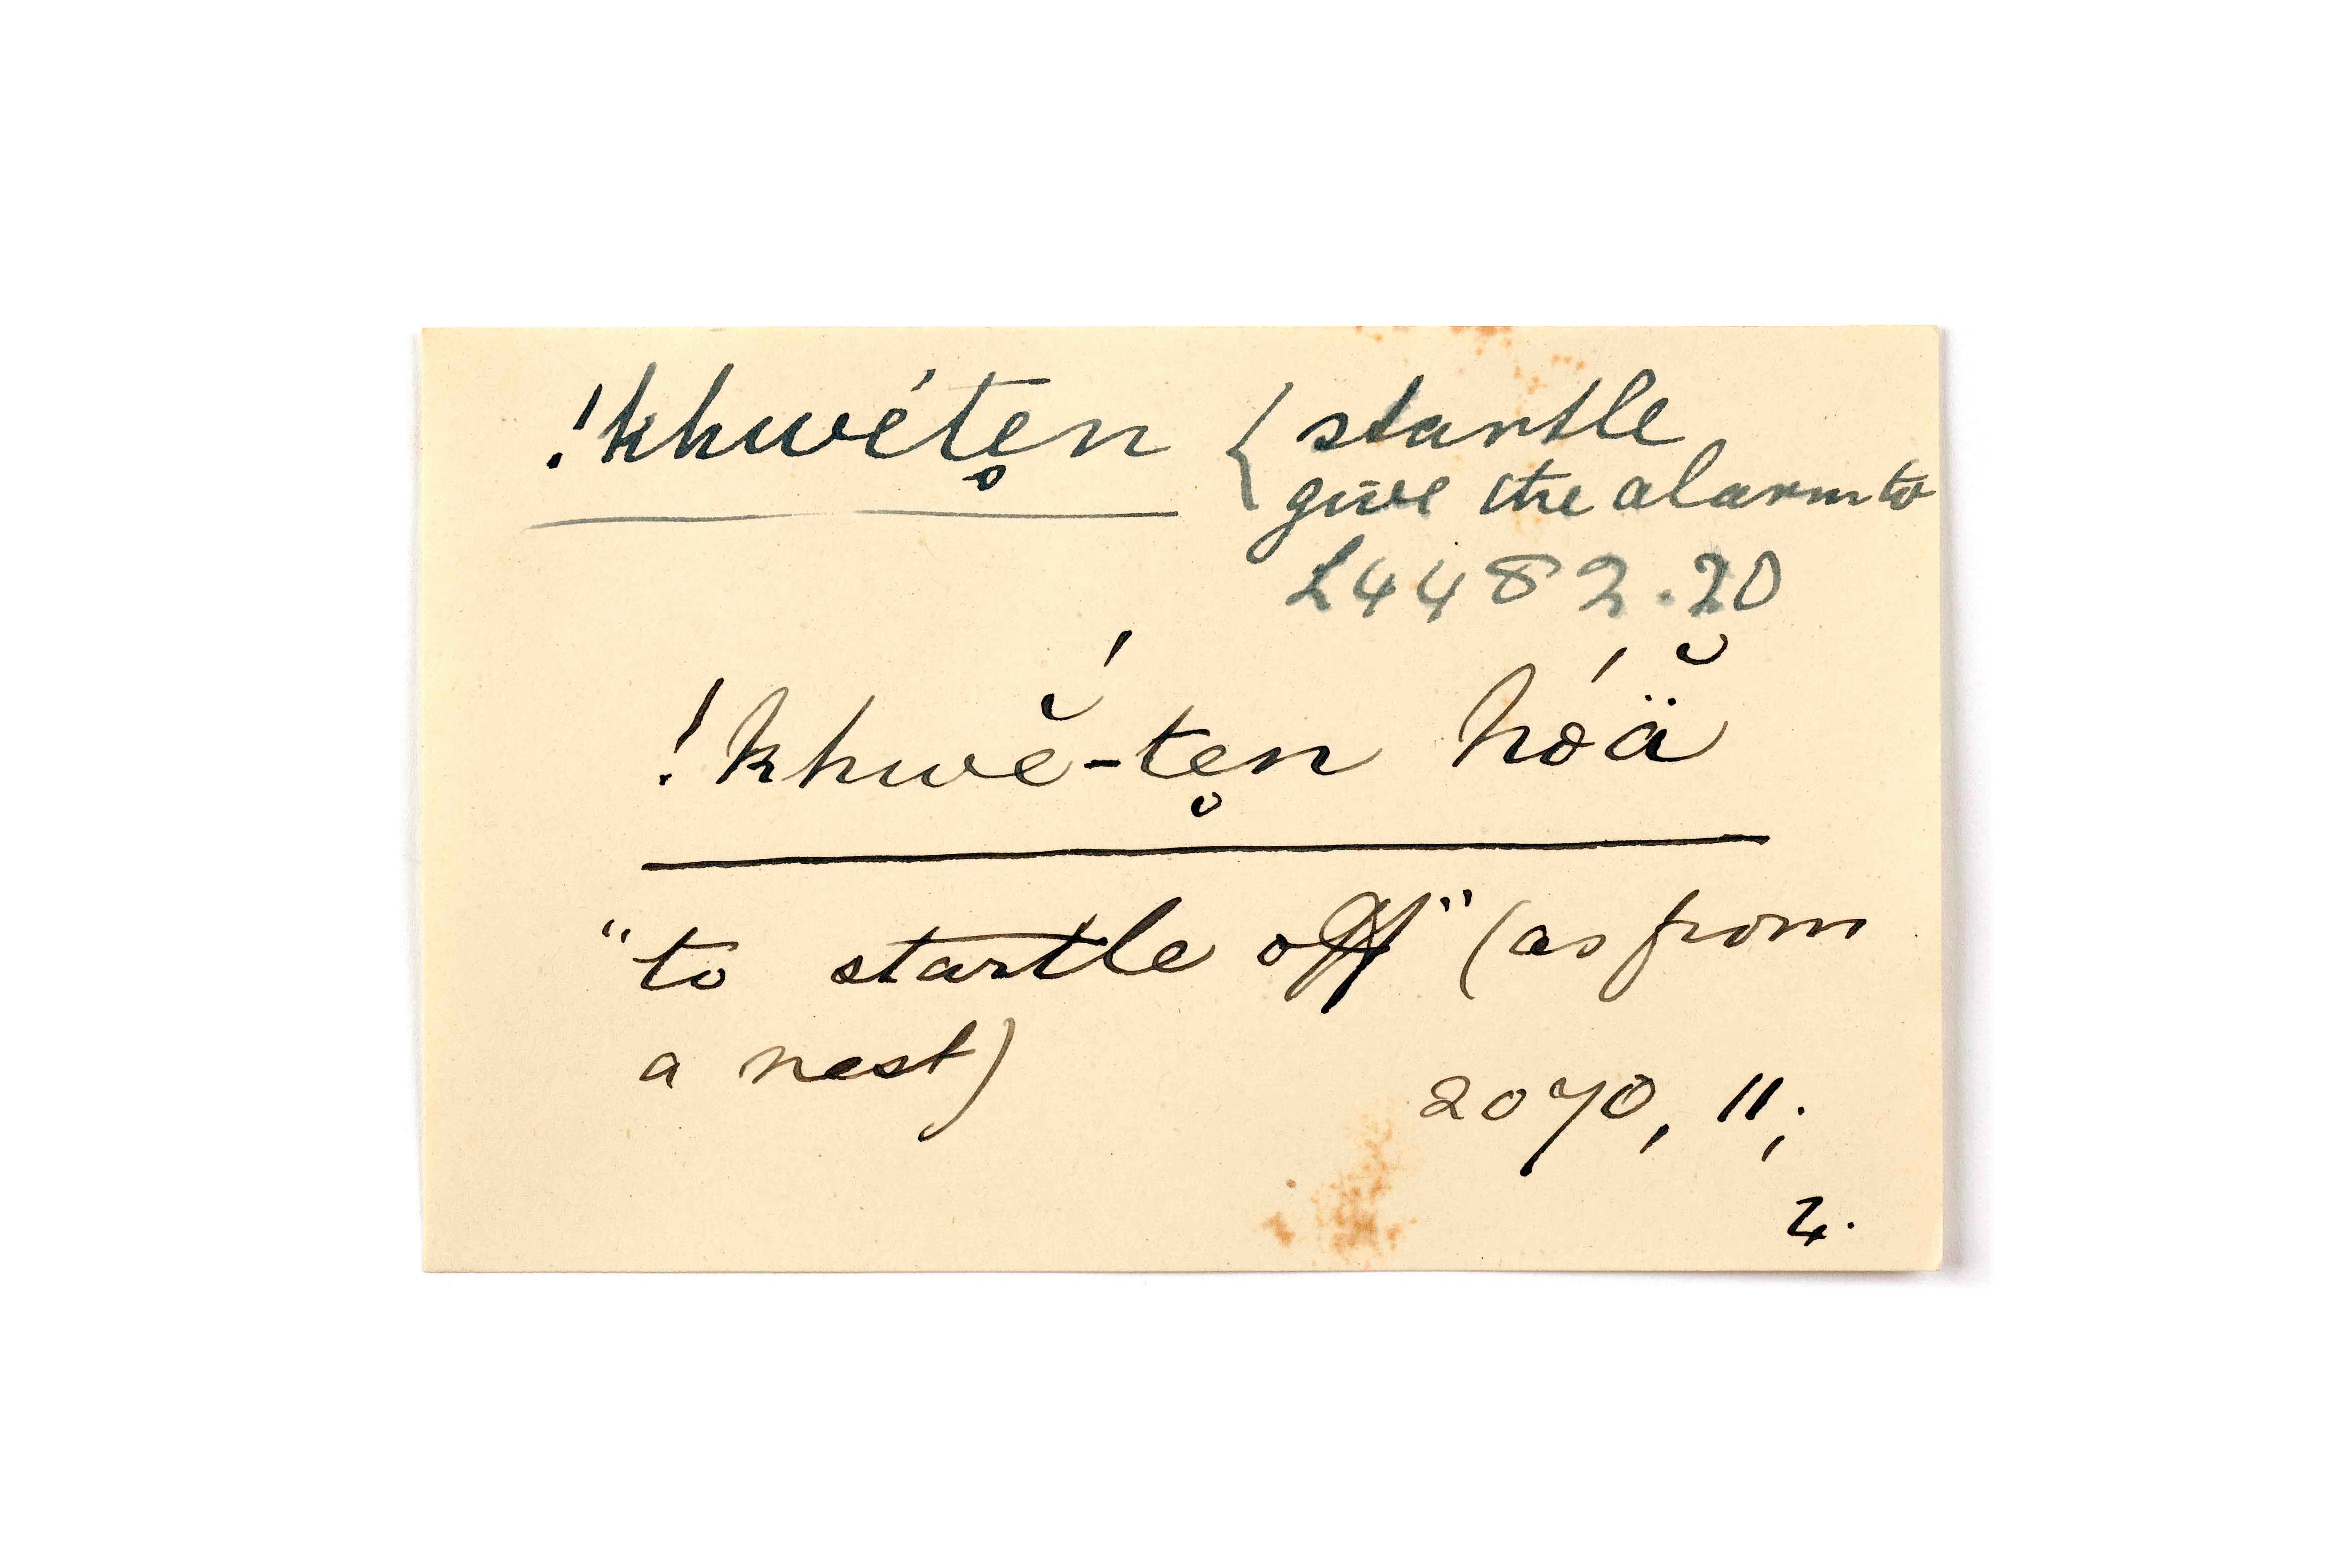 !khwéte̥n { startle
give the alarm to
L4482.20
!khwĕ́-te̥n hóä̆
"to startle off" (as from
a nest)
2070, 11;
2.